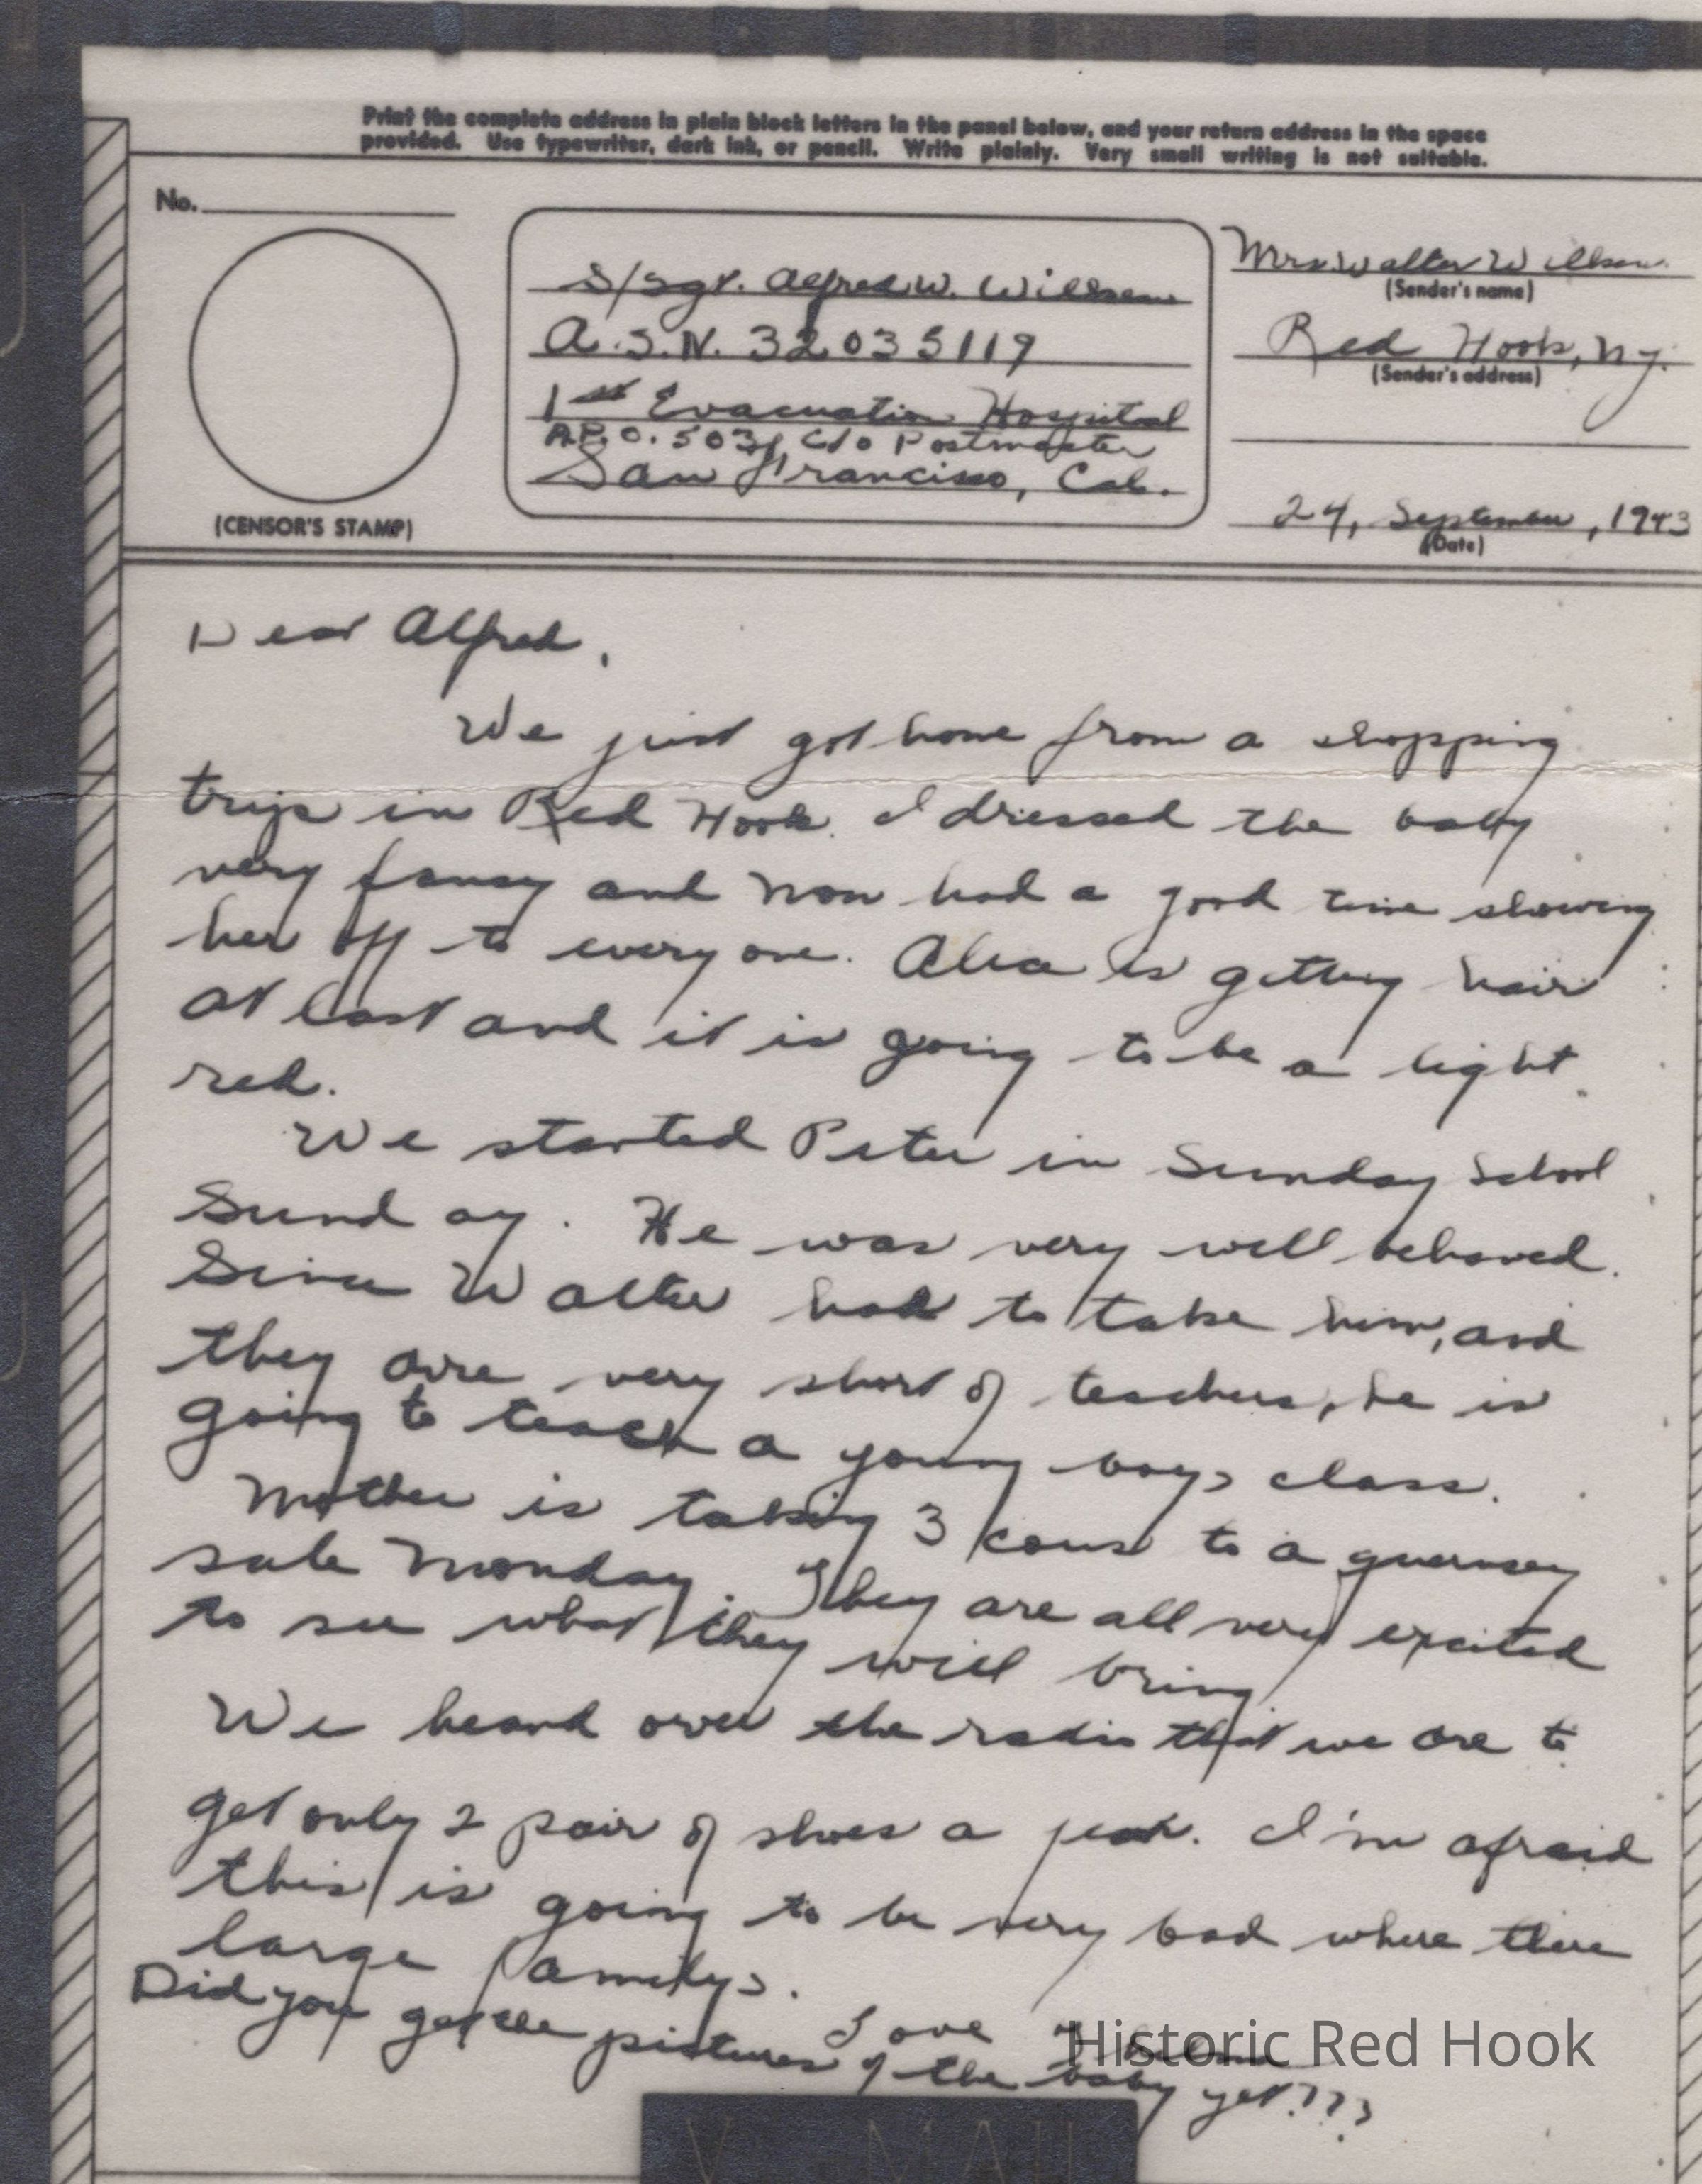 Print the complete address in plain block letters in the panel below, and your return address in the space
provided. Use typewriter, dark ink, or pencil. Write plainly. Very small writing is not suitable.
No.
(CENSOR'S STAMP)
S/Sgt. Alfred W. Willson
A.S.N. 32035119
1st Evacuation Hospital
A.P.O. 503, c/o Postmaster
San Francisco, Cal.
Mrs. Walter Willson
(Sender's name)
Red Hook, Ny.
(Sender's address)
24, September, 1943
(Date)
Dear Alfred,
We just got home from a shopping
trip in Red Hook. I dressed the baby
very fancy and now had a good time showing
her off to everyone. Alice is getting hair
at last and it is going to be a light
red.
We started Peter in Sunday School
Sunday. He was very well behaved.
Since Walter had to take him, and
they are very short of teachers, he is
going to teach a young boys class.
Mother is taking 3 cows to a guernsey
sale Monday. They are all very excited
to see what they will bring.
We heard over the radio that we are to
get only 2 pair of shoes a year. I'm afraid
this is going to be very bad where there
large familys.
Love
Did you get the pictures of the baby yet???
Historic Red Hook
V - MAIL